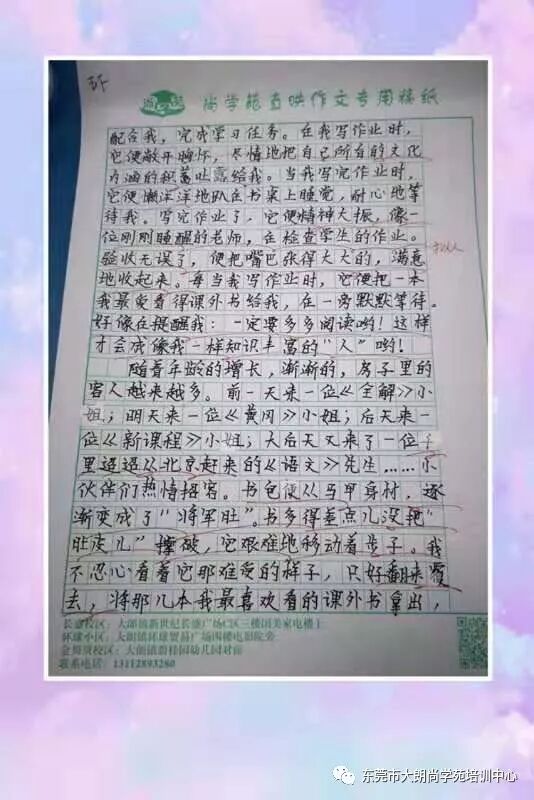 尚学苑直映作文专用稿纸
配合我，完成学习任务。在我写作业时，
它便敞开胸怀，尽情地把自己所有的文化
内涵的积蓄吐露给我。当我写完作业时，
它便懒洋洋地趴在书桌上睡觉，耐心地等
待我。写完作业了，它便精神大振，像一
位刚刚睡醒的老师，在检查学生的作业。
验收无误了，便把嘴巴张得大大的，满意
地收起来。每当我写作业时，它便把一本
我最爱看得课外书给我，在一旁默默等待。
好像在提醒我：一定要多多阅读哟！这样
才会成像我一样知识丰富的“人”哟！
随着年龄的增长，渐渐的，房子里的
客人越来越多。前一天来一位《全解》小
姐；明天来一位《黄冈》小姐；后天来一
位《新课程》小姐；大后天又来了一位千
里迢迢从北京赶来的《语文》先生……小
伙伴们热情招客。书包便从马甲身材，逐
渐变成了“将军肚”。书多得差点儿没把“
肚皮儿”撑破，它艰难地移动着步子。我
不忍心看着它那难受的样子，只好翻来覆
去，将那几本我最喜欢看的课外书拿出，
长盛校区：大朗镇新世纪长盛广场C区三楼国美家电楼上
环球小区：大朗镇环球贸易广场围楼电影院旁
金朗校区：大朗镇碧桂园幼儿园对面
联系电话：13112893280
东莞市大朗尚学苑培训中心